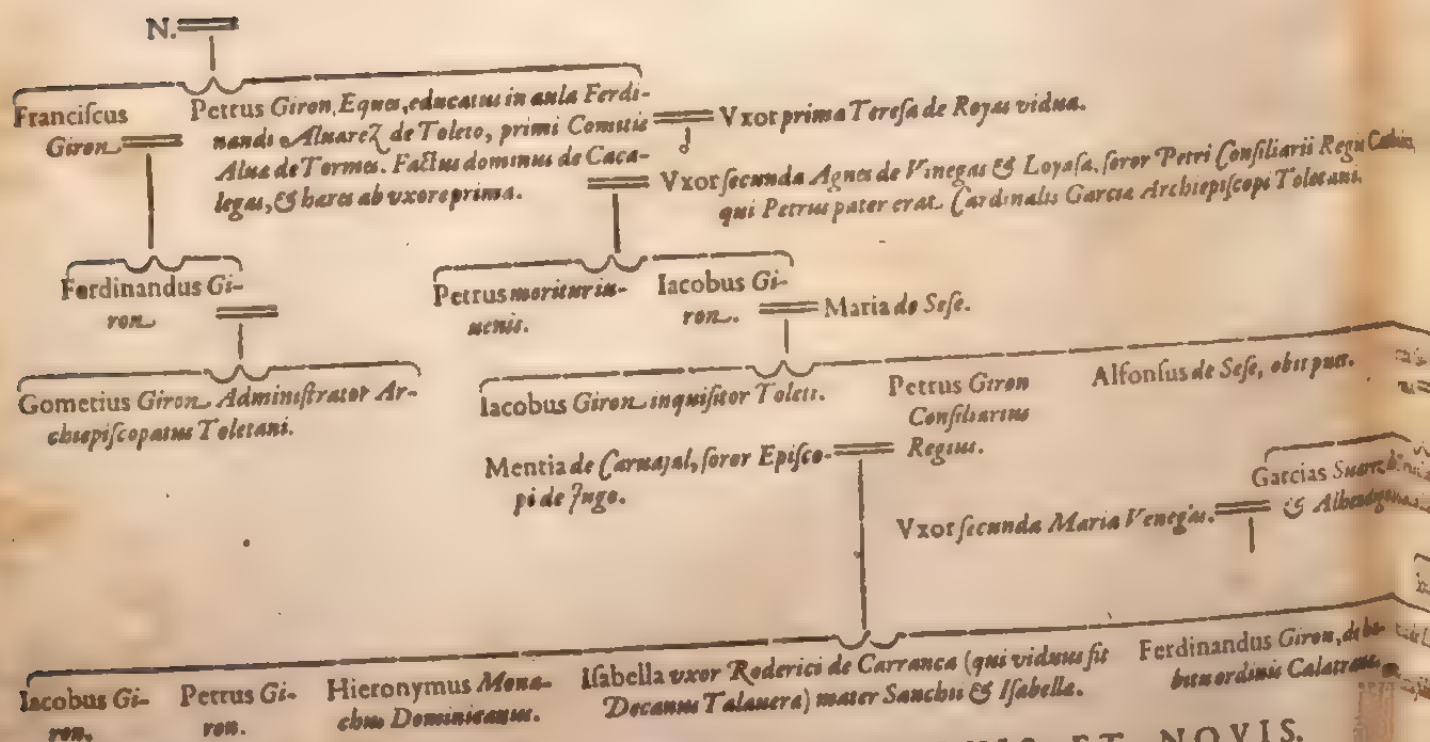 N.
Franciſcus
Giron
Petrus Giron, Eques, educatus in aula Ferdi-
nandi Aluarez de Toleto, primi Comitis
Alua de Tormes. Factus dominus de Caca-
legas, & hares ab vxore prima.
Vxor prima Tereſa de Royas vidua.
Vxor ſecunda Agnes de Vinegas & Loyaſa, ſoror Petri Conſiliarii Regii
qui Petrus pater erat Cardinalis Garcia Archiepiſcopi Toletani.
Ferdinandus Gi-
ron
Petrus moritur iu-
uenis.
Iacobus Gi-
ron.
Maria de Seſe.
Gometius Giron Adminiſtrator Ar-
chiepiſcopatus Toletani.
Iacobus Giron inquiſitor Toleti.
Petrus Giron
Conſiliarius
Regius.
Alfonſus de Seſe, obiit puer.
Mentia de Caruajal, ſoror Epiſco-
pi de Jugo.
Garcias Suarez
&
Vxor ſecunda Maria Venegas.
Iacobus Gi-
ron.
Petrus Gi-
ron.
Hieronymus Mona-
chus Dominicanus.
Iſabella vxor Roderici de Carranca (qui viduus fit
Decanus Talauera) mater Sanchii & Iſabella.
Ferdinandus Giron, de ha-
bitu ordinis Calatraua.
ET NOVIS.